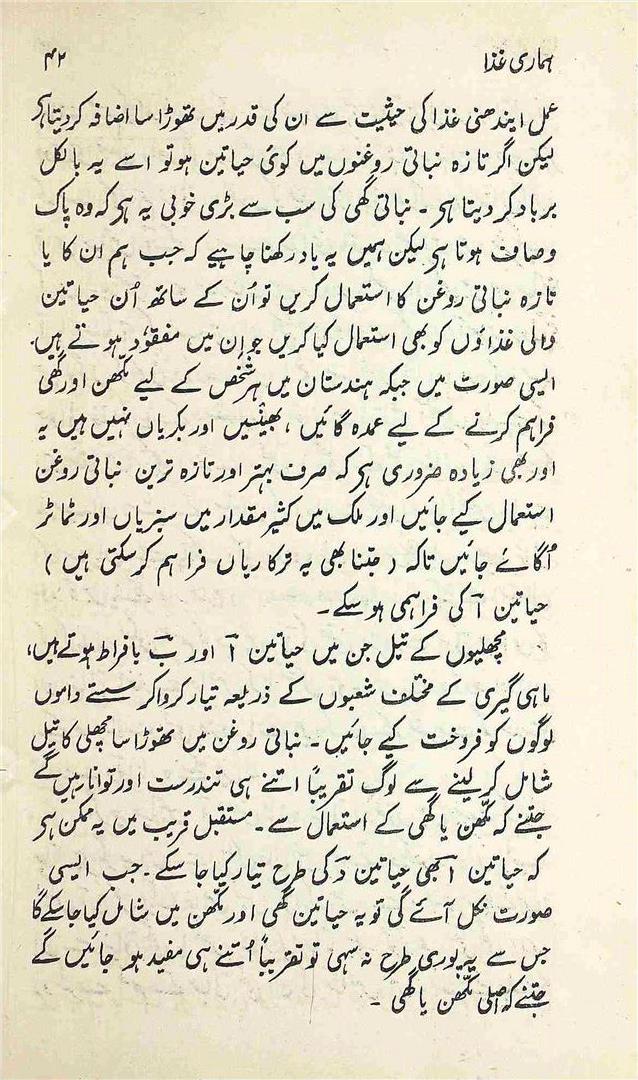 ہماری غذا ۴۲
عمل ایندھنی غذا کی حیثیت سے ان کی قدر میں تھوڑا سا اضافہ کر دیتا ہے
لیکن اگر تازہ نباتی روغنوں میں کوئی حیاتین ہو تو اسے یہ بالکل
برباد کر دیتا ہی ۔ نباتی گھی کی سب سے بڑی خوبی یہ ہی کہ وہ پاک
وصاف ہوتا ہی لیکن ہمیں یہ یاد رکھنا چاہیے کہ جب ہم ان کا یا
تازہ نباتی روغن کا استعمال کریں تو اُن کے ساتھ اُن حیاتین
والی غذاؤں کو بھی استعمال کیا کریں جو اِن میں مفقوٗد ہوتے ہیں۔
ایسی صورت میں جبکہ ہندستان میں ہر شخص کے لیے مکّھن اور گھی
فراہم کرنے کے لیے عمدہ گائیں ، بھینسیں اور بکریاں نہیں ہیں یہ
اور بھی زیادہ ضروری ہی کہ صرف بہتر اور تازہ ترین نباتی روغن
استعمال کیے جائیں اور ملک میں کثیر مقدار میں سبزیاں اور ٹماٹر
اُگائے جائیں تاکہ ( جتنا بھی یہ ترکاریاں فراہم کرسکتی ہیں )
حیاتین آ کی فراہمی ہو سکے ۔
مچھلیوں کے تیل جن میں حیاتین آ اور بؔ بافراط ہوتے ہیں،
ماہی گیری کے مختلف شعبوں کے ذریعہ تیار کرواکر سستے داموں
لوگوں کو فروخت کیے جائیں ۔ نباتی روغن میں تھوڑا سا مچھلی کا تیل
شامل کر لینے سے لوگ تقریباً اتنے ہی تندرست اور توانا رہیں گے
جتنے کہ مکّھن یا گھی کے استعمال سے ۔ مستقبل قریب میں یہ ممکن ہی
کہ حیاتین آ بھی حیاتین دؔ کی طرح تیار کیا جا سکے ۔ جب ایسی
صورت نکل آئے گی تو یہ حیاتین گھی اور مکّھن میں شامل کیا جاسکے گا
جس سے یہ پوری طرح نہ سہی تو تقریباً اُتنے ہی مفید ہو جائیں گے
جتنے کہ اصلی مکّھن یا گھی ۔